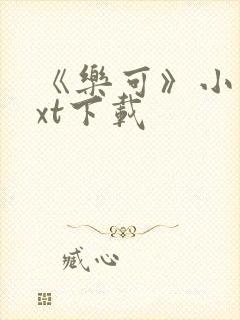 《樂可》小
xt下載
臧心